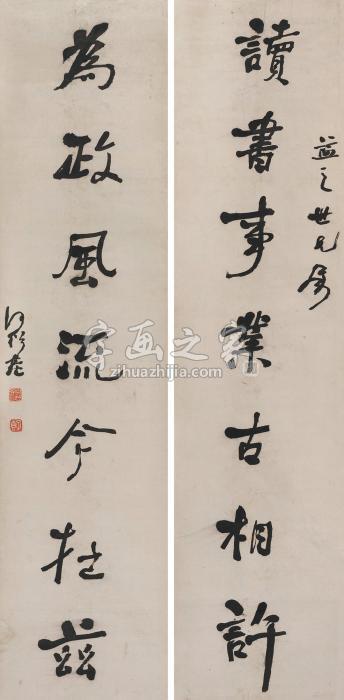 益之世兄屬
讀書事業古相許
為政風流今在茲
字画之家
zihuazhijia.com